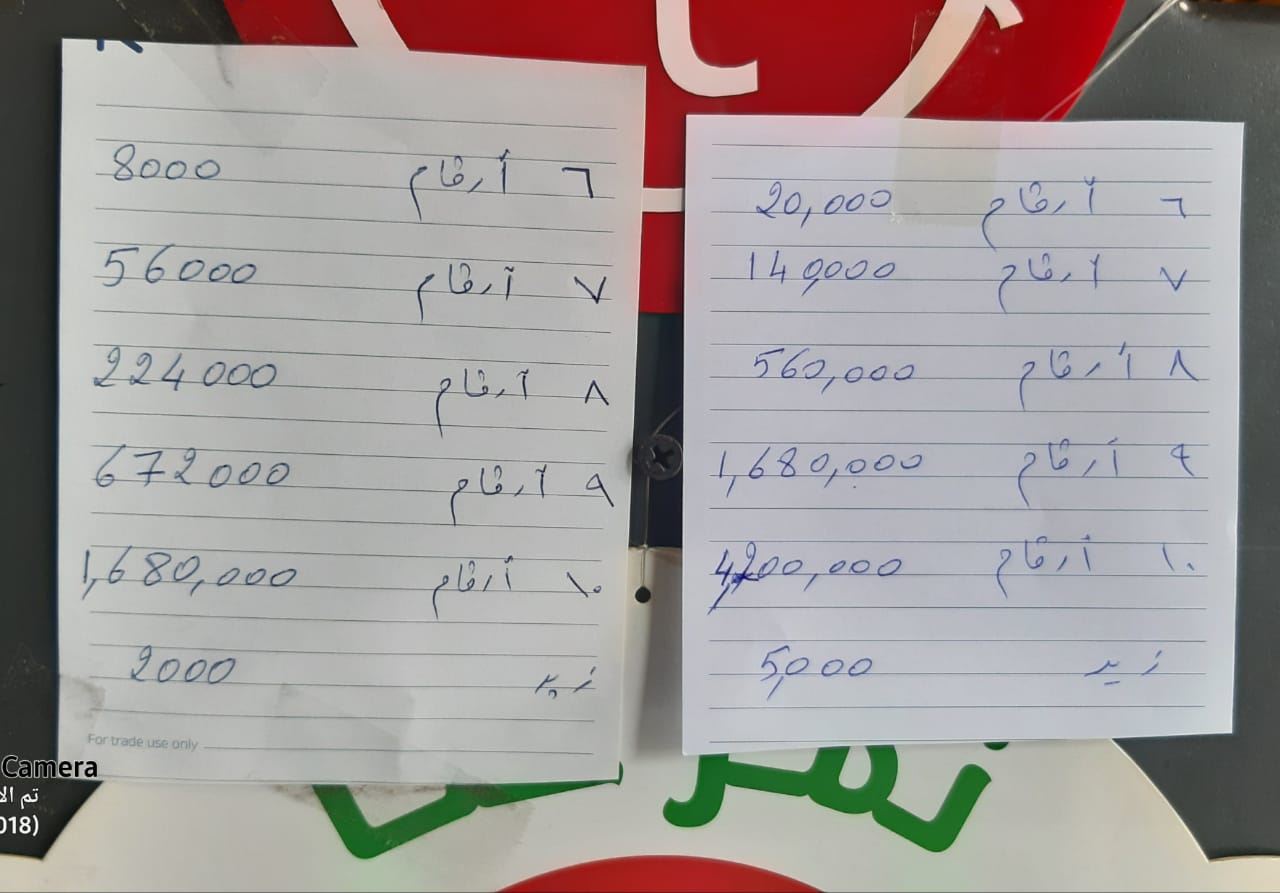 ٦ أرقام 8000
٧ أرقام 56000
٨ أرقام 224000
٩ أرقام 672000
١٠ أرقام 1,680,000
زيد 2000
For trade use only
٦ أرقام 20,000
٧ أرقام 140,000
٨ أرقام 560,000
٩ أرقام 1,680,000
١٠ أرقام 4,200,000
زيد 5,000
Camera
018)